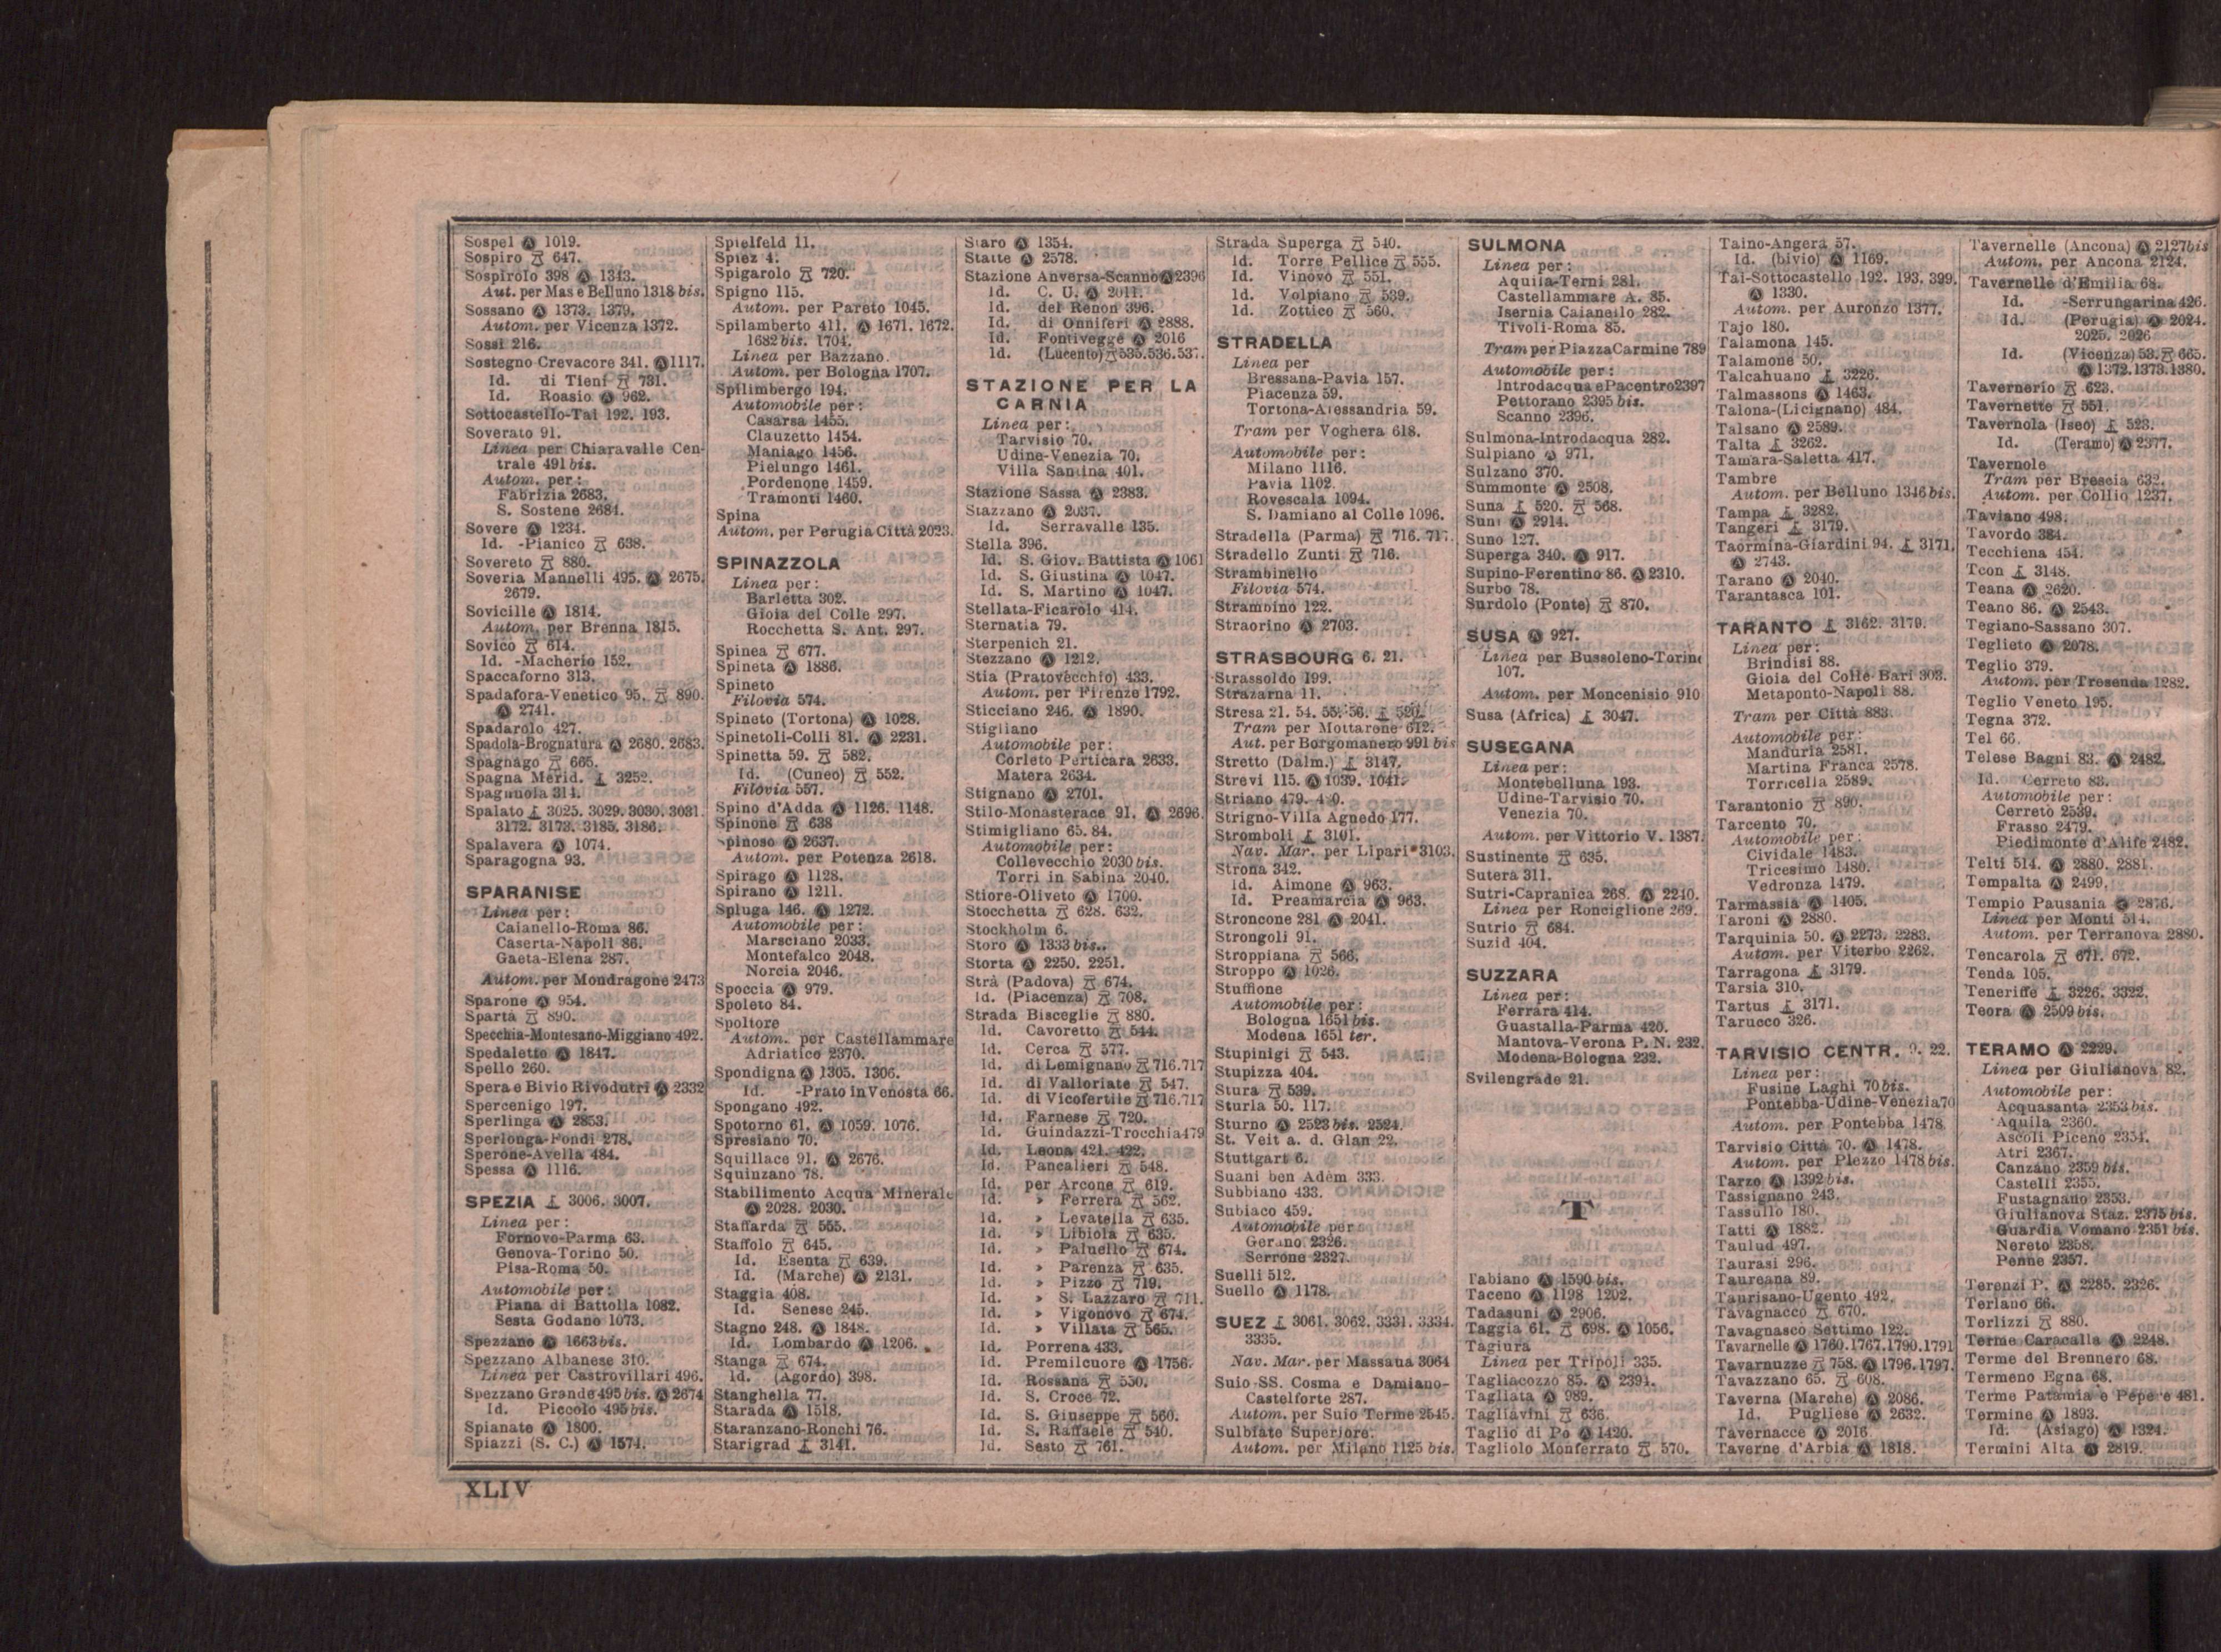 Sospel Ⓐ 1019.
Sospiro 647.
Sospirolo 398 Ⓐ 1343.
Aut. per Mas e Belluno 1318 bis.
Sossano Ⓐ 1373. 1379.
Autom. per Vicenza 1372.
Sossi 216.
Sostegno Crevacore 341. Ⓐ 1117.
Id. di Tieni 731.
Id. Roasio Ⓐ 962.
Sottocastello-Tai 192. 193.
Soverato 91.
Linea per Chiaravalle Cen-
trale 491 bis.
Autom. per:
Fabrizia 2683.
S. Sostene 2684.
Sovere Ⓐ 1234.
Id. -Pianico 638.
Sovereto 880.
Soveria Mannelli 495. Ⓐ 2675.
2679.
Sovicille Ⓐ 1814.
Autom. per Brenna 1815.
Sovico 614.
Id. -Macherio 152.
Spaccaforno 313.
Spadafora-Venetico 95. 890.
Ⓐ 2741.
Spadarolo 427.
Spadola-Brognatura Ⓐ 2680. 2683.
Spagnago 665.
Spagna Merid. 3252.
Spagnuola 314.
Spalato 3025. 3029. 3030. 3031.
3172. 3173. 3185. 3186.
Spalavera Ⓐ 1074.
Sparagogna 93.
SPARANISE
Linea per:
Caianello-Roma 86.
Caserta-Napoli 86.
Gaeta-Elena 287.
Autom. per Mondragone 2473
Sparone Ⓐ 954.
Spartà 890.
Specchia-Montesano-Miggiano 492.
Spedaletto Ⓐ 1847.
Spello 260.
Spera e Bivio Rivodutri Ⓐ 2332
Spercenigo 197.
Sperlinga Ⓐ 2853.
Sperlonga-Fondi 278.
Sperone-Avella 484.
Spessa Ⓐ 1116.
SPEZIA 3006. 3007.
Linea per:
Fornovo-Parma 63.
Genova-Torino 50.
Pisa-Roma 50.
Automobile per:
Piana di Battolla 1082.
Sesta Godano 1073.
Spezzano Ⓐ 1663 bis.
Spezzano Albanese 310.
Linea per Castrovillari 496.
Spezzano Grande 495 bis. Ⓐ 2674
Id. Piccolo 495 bis.
Spianate Ⓐ 1800.
Spiazzi (S. C.) Ⓐ 1574.
Spielfeld 11.
Spiez 4.
Spigarolo 720.
Spigno 115.
Autom. per Pareto 1045.
Spilamberto 411. Ⓐ 1671. 1672.
1682 bis. 1704.
Linea per Bazzano.
Autom. per Bologna 1707.
Spilimbergo 194.
Automobile per:
Casarsa 1455.
Clauzetto 1454.
Maniago 1456.
Pielungo 1461.
Pordenone 1459.
Tramonti 1460.
Spina
Autom. per Perugia Città 2023.
SPINAZZOLA
Linea per:
Barletta 302.
Gioia del Colle 297.
Rocchetta S. Ant. 297.
Spinea 677.
Spineta Ⓐ 1886.
Spineto
Filovia 574.
Spineto (Tortona) Ⓐ 1028.
Spinetoli-Colli 81. Ⓐ 2231.
Spinetta 59. 582.
Id. (Cuneo) 552.
Filovia 557.
Spino d'Adda Ⓐ 1126. 1148.
Spinone 638
Spinoso Ⓐ 2637.
Autom. per Potenza 2618.
Spirago Ⓐ 1128.
Spirano Ⓐ 1211.
Spluga 146. Ⓐ 1272.
Automobile per:
Marsciano 2033.
Montefalco 2048.
Norcia 2046.
Spoccia Ⓐ 979.
Spoleto 84.
Spoltore
Autom. per Castellammare
Adriatico 2370.
Spondigna Ⓐ 1305. 1306.
Id. -Prato in Venosta 66.
Spongano 492.
Spotorno 61. Ⓐ 1059. 1076.
Spresiano 70.
Squillace 91. Ⓐ 2676.
Squinzano 78.
Stabilimento Acqua Minerale
Ⓐ 2028. 2030.
Staffarda 555.
Staffolo 645.
Id. Esenta 639.
Id. (Marche) Ⓐ 2131.
Staggia 408.
Id. Senese 245.
Stagno 248. Ⓐ 1848.
Id. Lombardo Ⓐ 1206.
Stanga 674.
Id. (Agordo) 398.
Stanghella 77.
Starada Ⓐ 1518.
Staranzano-Ronchi 76.
Starigrad 3141.
Staro Ⓐ 1354.
Statte Ⓐ 2578.
Stazione Anversa-Scanno Ⓐ 2396
Id. C. U. Ⓐ 2011.
Id. del Renon 396.
Id. di Onniferi Ⓐ 2888.
Id. Fontivegge Ⓐ 2016
Id. (Lucento) 535. 536. 537.
STAZIONE PER LA
CARNIA
Linea per:
Tarvisio 70.
Udine-Venezia 70.
Villa Santina 401.
Stazione Sassa Ⓐ 2383.
Stazzano Ⓐ 2037.
Id. Serravalle 135.
Stella 396.
Id. S. Giov. Battista Ⓐ 1061
Id. S. Giustina Ⓐ 1047.
Id. S. Martino Ⓐ 1047.
Stellata-Ficarolo 414.
Sternatia 79.
Sterpenich 21.
Stezzano Ⓐ 1212.
Stia (Pratovecchio) 433.
Autom. per Firenze 1792.
Sticciano 246. Ⓐ 1890.
Stigliano
Automobile per:
Corleto Perticara 2633.
Matera 2634.
Stignano Ⓐ 2701.
Stilo-Monasterace 91. Ⓐ 2696.
Stimigliano 65. 84.
Automobile per:
Collevecchio 2030 bis.
Torri in Sabina 2040.
Stiore-Oliveto Ⓐ 1700.
Stocchetta 628. 632.
Stockholm 6.
Storo Ⓐ 1333 bis.
Storta Ⓐ 2250. 2251.
Strà (Padova) 674.
Id. (Piacenza) 708.
Strada Bisceglie 880.
Id. Cavoretto 544.
Id. Cerca 577.
Id. di Lemignano 716. 717
Id. di Valloriate 547.
Id. di Vicofertile 716. 717
Id. Farnese 720.
Id. Guindazzi-Trocchia 479
Id. Leona 421. 422.
Id. Pancalieri 548.
Id. per Arcone 619.
Id. » Ferrera 562.
Id. » Levatella 635.
Id. » Libiola 635.
Id. » Paluello 674.
Id. » Parenza 635.
Id. » Pizzo 719.
Id. » S. Lazzaro 711.
Id. » Vigonovo 674.
Id. » Villata 565.
Id. Porrena 433.
Id. Premilcuore Ⓐ 1756.
Id. Rossana 550.
Id. S. Croce 72.
Id. S. Giuseppe 560.
Id. S. Raffaele 540.
Id. Sesto 761.
Strada Superga 540.
Id. Torre Pellice 555.
Id. Vinovo 551.
Id. Volpiano 539.
Id. Zottico 560.
STRADELLA
Linea per
Bressana-Pavia 157.
Piacenza 59.
Tortona-Alessandria 59.
Tram per Voghera 618.
Automobile per:
Milano 1116.
Pavia 1102.
Rovescala 1094.
S. Damiano al Colle 1096.
Stradella (Parma) 716. 717.
Stradello Zunti 716.
Strambinello
Filovia 574.
Strambino 122.
Straorino Ⓐ 2703.
STRASBOURG 6. 21.
Strassoldo 199.
Strazarna 11.
Stresa 21. 54. 55. 56. 520.
Tram per Mottarone 612.
Aut. per Borgomanero 991 bis
Stretto (Dalm.) 3147.
Strevi 115. Ⓐ 1039. 1041.
Striano 479.
Strigno-Villa Agnedo 177.
Stromboli 3101.
Nav. Mar. per Lipari 3103.
Strona 342.
Id. Aimone Ⓐ 963.
Id. Preamarcia Ⓐ 963.
Stroncone 281 Ⓐ 2041.
Strongoli 91.
Stroppiana 566.
Stroppo Ⓐ 1026.
Stuffione
Automobile per:
Bologna 1651 bis.
Modena 1651 ter.
Stupinigi 543.
Stupizza 404.
Stura 539.
Sturla 50. 117.
Sturno Ⓐ 2523 bis. 2524.
St. Veit a. d. Glan 22.
Stuttgart 6.
Suani ben Adem 333.
Subbiano 433.
Subiaco 459.
Automobile per
Gerano 2326.
Serrone 2327.
Suelli 512.
Suello Ⓐ 1178.
SUEZ 3061. 3062. 3331. 3334.
3335.
Nav. Mar. per Massaua 3064
Suio-SS. Cosma e Damiano-
Castelforte 287.
Autom. per Suio Terme 2545.
Sulbiate Superiore:
Autom. per Milano 1125 bis.
SULMONA
Linea per:
Aquila-Terni 281.
Castellammare A. 85.
Isernia Caianello 282.
Tivoli-Roma 85.
Tram per Piazza Carmine 789
Automobile per:
Introdacqua e Pacentro 2397
Pettorano 2395 bis.
Scanno 2396.
Sulmona-Introdacqua 282.
Sulpiano Ⓐ 971.
Sulzano 370.
Summonte Ⓐ 2508.
Suna 520. 568.
Suni Ⓐ 2914.
Suno 127.
Superga 340. Ⓐ 917.
Supino-Ferentino 86. Ⓐ 2310.
Surbo 78.
Surdolo (Ponte) 870.
SUSA Ⓐ 927.
Linea per Bussoleno-Torino
107.
Autom. per Moncenisio 910
Susa (Africa) 3047.
SUSEGANA
Linea per:
Montebelluna 193.
Udine-Tarvisio 70.
Venezia 70.
Autom. per Vittorio V. 1387.
Sustinente 635.
Sutera 311.
Sutri-Capranica 268. Ⓐ 2240.
Linea per Ronciglione 269.
Sutrio 684.
Suzid 404.
SUZZARA
Linea per:
Ferrara 414.
Guastalla-Parma 420.
Mantova-Verona P. N. 232.
Modena-Bologna 232.
Svilengrade 21.
T
Tabiano Ⓐ 1590 bis.
Taceno Ⓐ 1198 1202.
Tadasuni Ⓐ 2906.
Taggia 61. 698. Ⓐ 1056.
Tagiura
Linea per Tripoli 335.
Tagliacozzo 85. Ⓐ 2394.
Tagliata Ⓐ 989.
Tagliavini 636.
Taglio di Po Ⓐ 1420.
Tagliolo Monferrato 570.
Taino-Angera 57.
Id. (bivio) Ⓐ 1169.
Tai-Sottocastello 192. 193. 399.
Ⓐ 1330.
Autom. per Auronzo 1377.
Tajo 180.
Talamona 145.
Talamone 50.
Talcahuano 3226.
Talmassons Ⓐ 1463.
Talona-(Licignano) 484.
Talsano Ⓐ 2589.
Talta 3262.
Tamara-Saletta 417.
Tambre
Autom. per Belluno 1346 bis.
Tampa 3282.
Tangeri 3179.
Taormina-Giardini 94. 3171.
Ⓐ 2743.
Tarano Ⓐ 2040.
Tarantasca 101.
TARANTO 3162. 3179.
Linea per:
Brindisi 88.
Gioia del Colle-Bari 303.
Metaponto-Napoli 88.
Tram per Città 883.
Automobile per:
Manduria 2581.
Martina Franca 2578.
Torricella 2589.
Tarantonio 890.
Tarcento 70.
Automobile per:
Cividale 1483.
Tricesimo 1480.
Vedronza 1479.
Tarmassia Ⓐ 1405.
Taroni Ⓐ 2880.
Tarquinia 50. Ⓐ 2273. 2283.
Autom. per Viterbo 2262.
Tarragona 3179.
Tarsia 310.
Tartus 3171.
Tarucco 326.
TARVISIO CENTR. 9. 22.
Linea per:
Fusine Laghi 70 bis.
Pontebba-Udine-Venezia 70
Autom. per Pontebba 1478
Tarvisio Città 70. Ⓐ 1478.
Autom. per Plezzo 1478 bis.
Tarzo Ⓐ 1392 bis.
Tassignano 243.
Tassullo 180.
Tatti Ⓐ 1882.
Taulud 497.
Taurasi 296.
Taureana 89.
Taurisano-Ugento 492.
Tavagnacco 670.
Tavagnasco Settimo 122.
Tavarnelle Ⓐ 1760. 1767. 1790. 1791
Tavarnuzze 758. Ⓐ 1796. 1797.
Tavazzano 65. 608.
Taverna (Marche) Ⓐ 2086.
Id. Pugliese Ⓐ 2632.
Tavernacce Ⓐ 2016
Taverne d'Arbia Ⓐ 1818.
Tavernelle (Ancona) Ⓐ 2127 bis
Autom. per Ancona 2124.
Tavernelle d'Emilia 68.
Id. -Serrungarina 426.
Id. (Perugia) Ⓐ 2024.
2025. 2026
Id. (Vicenza) 53. 665.
Ⓐ 1372. 1373. 1380.
Tavernerio 623.
Tavernette 551.
Tavernola (Iseo) 523.
Id. (Teramo) Ⓐ 2377.
Tavernole
Tram per Brescia 632.
Autom. per Collio 1237.
Taviano 498.
Tavordo 384.
Tecchiena 454.
Tcon 3148.
Teana Ⓐ 2620.
Teano 86. Ⓐ 2543.
Tegiano-Sassano 307.
Teglieto Ⓐ 2078.
Teglio 379.
Autom. per Tresenda 1282.
Teglio Veneto 195.
Tegna 372.
Tel 66.
Telese Bagni 83. Ⓐ 2482.
Id. Cerreto 83.
Automobile per:
Cerreto 2539.
Frasso 2479.
Piedimonte d'Alife 2482.
Telti 514. Ⓐ 2880. 2881.
Tempalta Ⓐ 2499.
Tempio Pausania Ⓐ 2876.
Linea per Monti 514.
Autom. per Terranova 2880.
Tencarola 671. 672.
Tenda 105.
Teneriffe 3226. 3322.
Teora Ⓐ 2509 bis.
TERAMO Ⓐ 2229.
Linea per Giulianova 82.
Automobile per:
Acquasanta 2353 bis.
Aquila 2360.
Ascoli Piceno 2354.
Atri 2367.
Canzano 2359 bis.
Castelli 2355.
Fustagnano 2353.
Giulianova Staz. 2375 bis.
Guardia Vomano 2351 bis.
Nereto 2358.
Penne 2357.
Terenzi P. Ⓐ 2285. 2326.
Terlano 66.
Terlizzi 880.
Terme Caracalla Ⓐ 2248.
Terme del Brennero 68.
Termeno Egna 68.
Terme Patamia e Pepere 481.
Termine Ⓐ 1893.
Id. (Asiago) Ⓐ 1324.
Termini Alta Ⓐ 2819.
XLIV